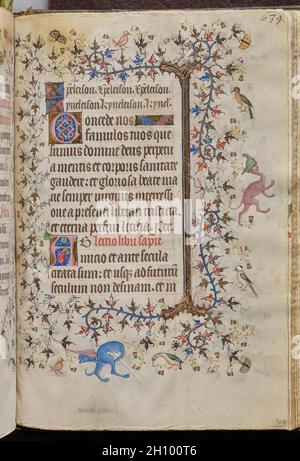 xpeleison. Xpeleison. Xpeleison.
kyrieleison. Kyrieleison. Kyriel.
Concede nos
famulos tuos que
sumus domine deus perpetu
a mentis et corporis sanitate
gaudere: et gloriosa beate ma
rie semper virginis interces
one a presenti liberari tristicia
et eterna perfrui leticia. P
Lectio libri sapie
Ab inicio et ante secula
creata sum: et usque ad futurum
seculum non desinam. et in
alamy
2H100T6